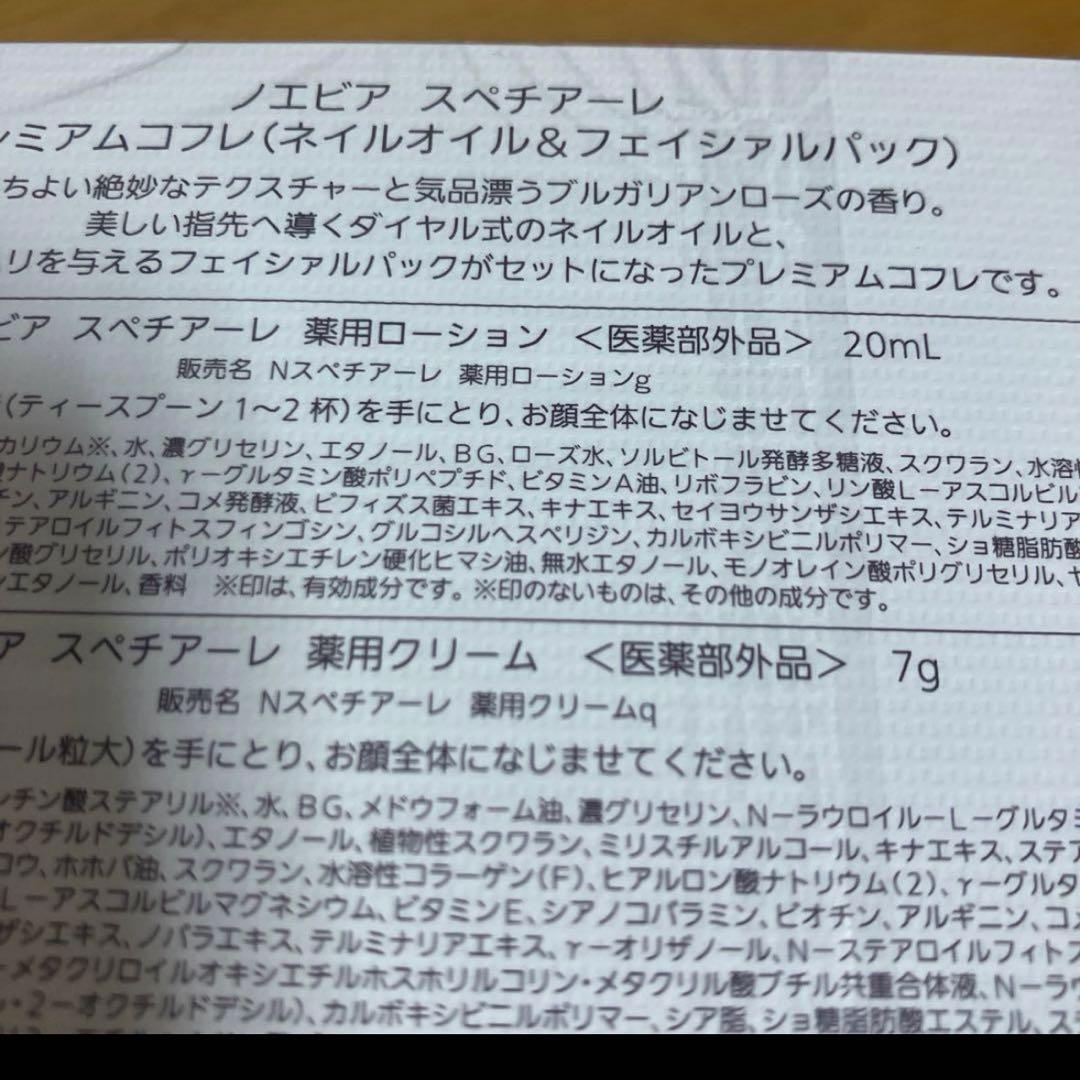 ノエビア スペチアーレ
レミアムコフレ(ネイルオイル&フェイシァルパック)
ちよい絶妙なテクスチャーと気品漂うブルガリアンローズの香り。
美しい指先へ導くダイヤル式のネイルオイルと、
リを与えるフェイシァルパックがセットになったプレミアムコフレです。
ビア スペチアーレ 薬用ローション <医薬部外品> 20mL
販売名 Nスペチアーレ 薬用ローションg
(ティースプーン1〜2杯)を手にとり、お顔全体になじませてください。
カリウム※、水、濃グリセリン、エタノール、BG、ローズ水、ソルビトール発酵多糖液、スクワラン、水溶性
ナトリウム(2)、γーグルタミン酸ポリペプチド、ビタミンA油、リボフラビン、リン酸Lーアスコルビル
チン、アルギニン、コメ発酵液、ビフィズス菌エキス、キナエキス、セイヨウサンザシエキス、テルミナリア
テアロイルフィトスフィンゴシン、グルコシルヘスペリジン、カルボキシビニルポリマー、ショ糖脂肪酸
ン酸グリセリル、ポリオキシエチレン硬化ヒマシ油、無水エタノール、モノオレイン酸ポリグリセリル、ヤ
エタノール、香料 ※印は、有効成分です。※印のないものは、その他の成分です。
ア スペチアーレ 薬用クリーム <医薬部外品> 7g
販売名 Nスペチアーレ 薬用クリームq
ール粒大)を手にとり、お顔全体になじませてください。
ンチン酸ステアリル※、水、BG、メドウフォーム油、濃グリセリン、NーラウロイルーLーグルタミ
オクチルドデシル)、エタノール、植物性スクワラン、ミリスチルアルコール、キナエキス、ステア
コウ、ホホバ油、スクワラン、水溶性コラーゲン(F)、ヒアルロン酸ナトリウム(2)、γーグルタ
Lーアスコルビルマグネシウム、ビタミンE、シアノコバラミン、ビオチン、アルギニン、コメ
ザシエキス、ノバラエキス、テルミナリアエキス、γーオリザノール、Nーステアロイルフィトス
ーメタクリロイルオキシエチルホスホリルコリン・メタクリル酸ブチル共重合体液、Nーラウ
・2ーオクチルドデシル)、カルボキシビニルポリマー、シア脂、ショ糖脂肪酸エステル、ステ